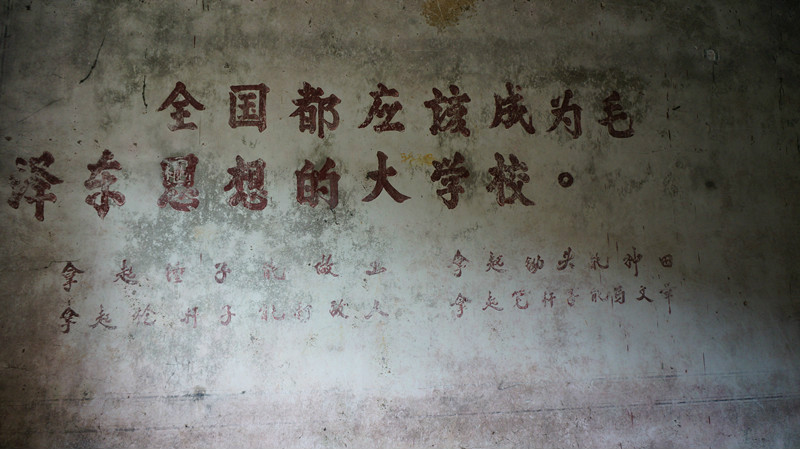 全国都应该成为毛
泽东思想的大学校。
拿起锤子能做工 拿起锄头能种田
拿起枪杆子能打敌人 拿起笔杆子能文章